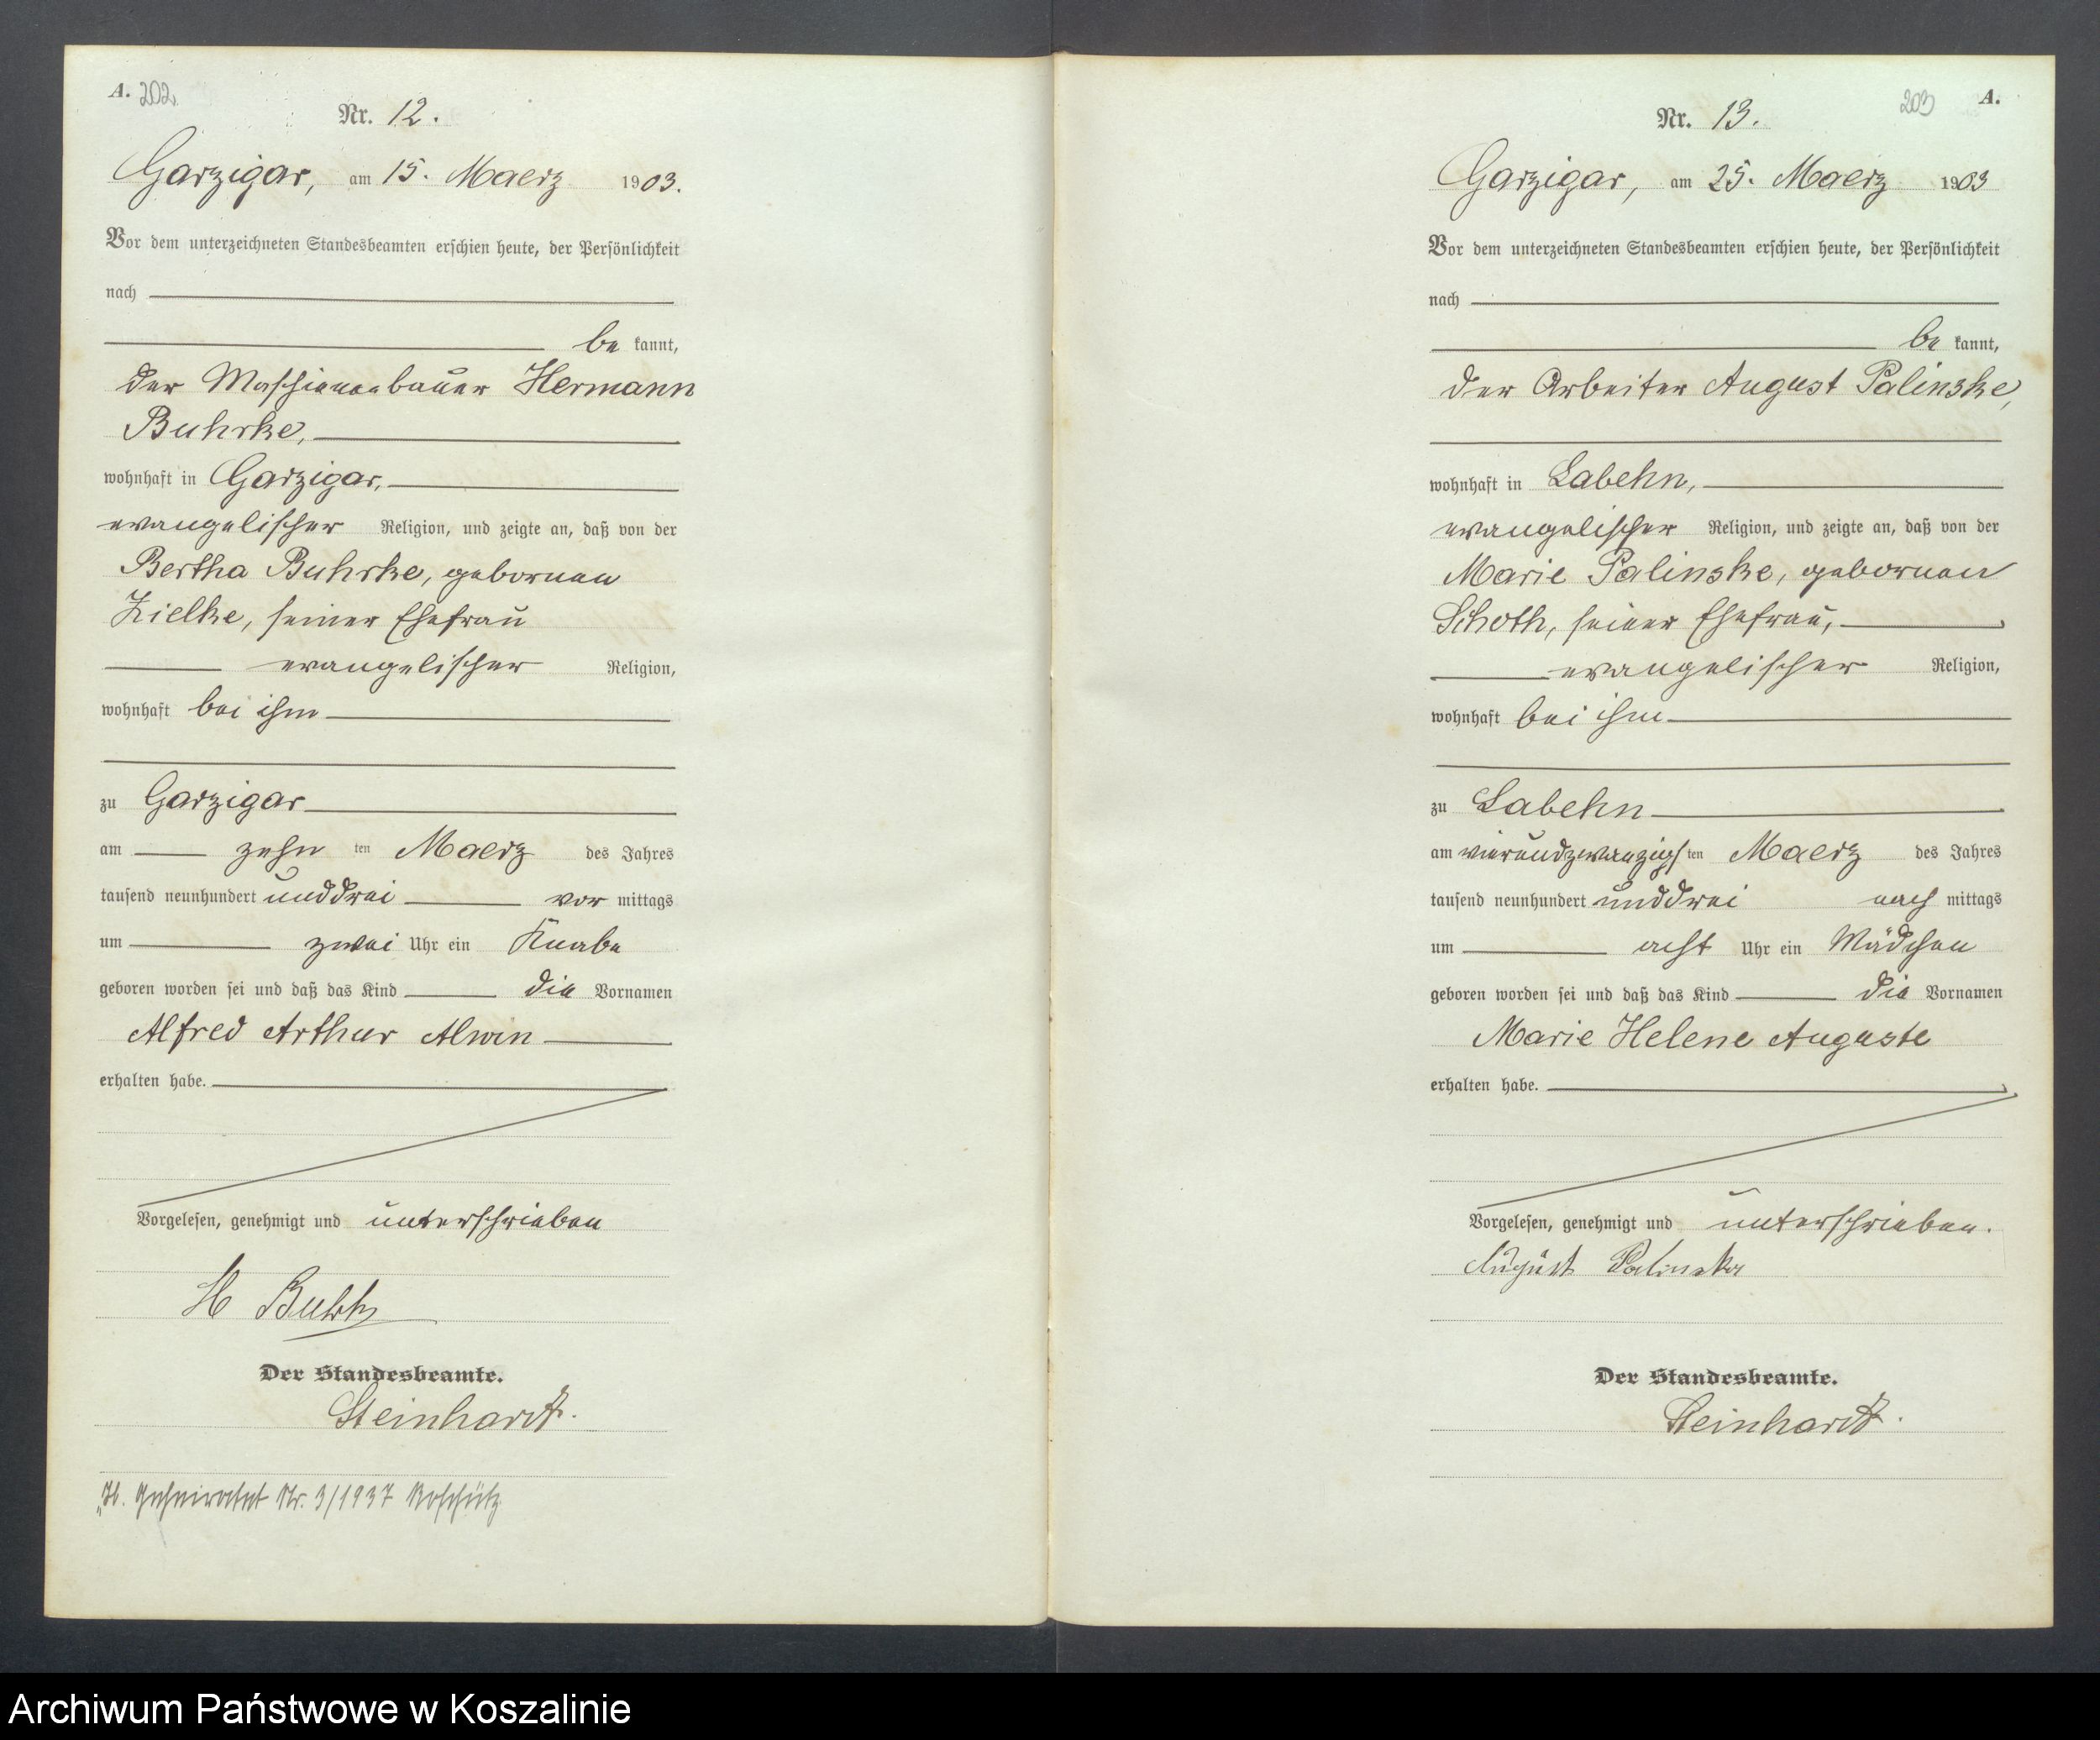 A. 202.
Nr. 12.
Garzigar, am 15. Maerz 1903.
Vor dem unterzeichneten Standesbeamten erschien heute, der Persönlichkeit
nach
be kannt,
der Maschinenbauer Hermann
Buhrke,
wohnhaft in Garzigar,
evangelischer Religion, und zeigte an, daß von der
Bertha Buhrke, gebornen
Zielke, seiner Ehefrau
evangelischer Religion,
wohnhaft bei ihm
zu Garzigar
am zehn ten Maerz des Jahres
tausend neunhundert unddrei vor mittags
um zwei Uhr ein Knabe
geboren worden sei und daß das Kind die Vornamen
Alfred Arthur Alwin
erhalten habe.
Vorgelesen, genehmigt und unterschrieben
H Buhrke
Der Standesbeamte.
Steinhardt.
Geheiratet Nr. 3/1937
203 A.
Nr. 13.
Garzigar, am 25. Maerz 1903
Vor dem unterzeichneten Standesbeamten erschien heute, der Persönlichkeit
nach
be kannt,
der Arbeiter August Palinske,
wohnhaft in Labehn,
evangelischer Religion, und zeigte an, daß von der
Marie Palinske, gebornen
Schoth, seiner Ehefrau,
evangelischer Religion,
wohnhaft bei ihm
zu Labehn
am vierundzwanzigs ten Maerz des Jahres
tausend neunhundert unddrei nach mittags
um acht Uhr ein Mädchen
geboren worden sei und daß das Kind die Vornamen
Marie Helene Auguste
erhalten habe.
Vorgelesen, genehmigt und unterschrieben.
August Palinske
Der Standesbeamte.
Steinhardt.
Archiwum Państwowe w Koszalinie